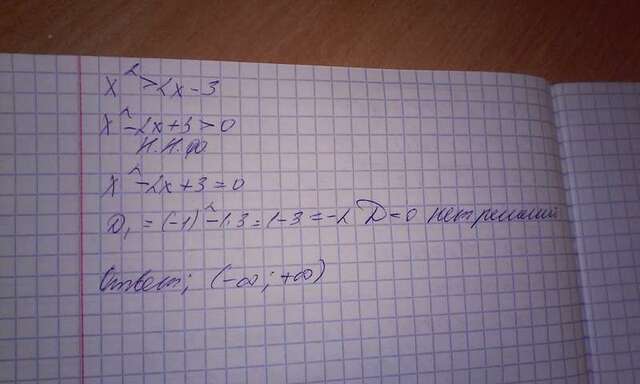 x² > 2x - 3
x² - 2x + 3 > 0
Н.Н.Ф.
x² - 2x + 3 = 0
D₁ = (-1)² - 1·3 = 1 - 3 = -2 D < 0 нет решений
Ответ; (-∞; +∞)